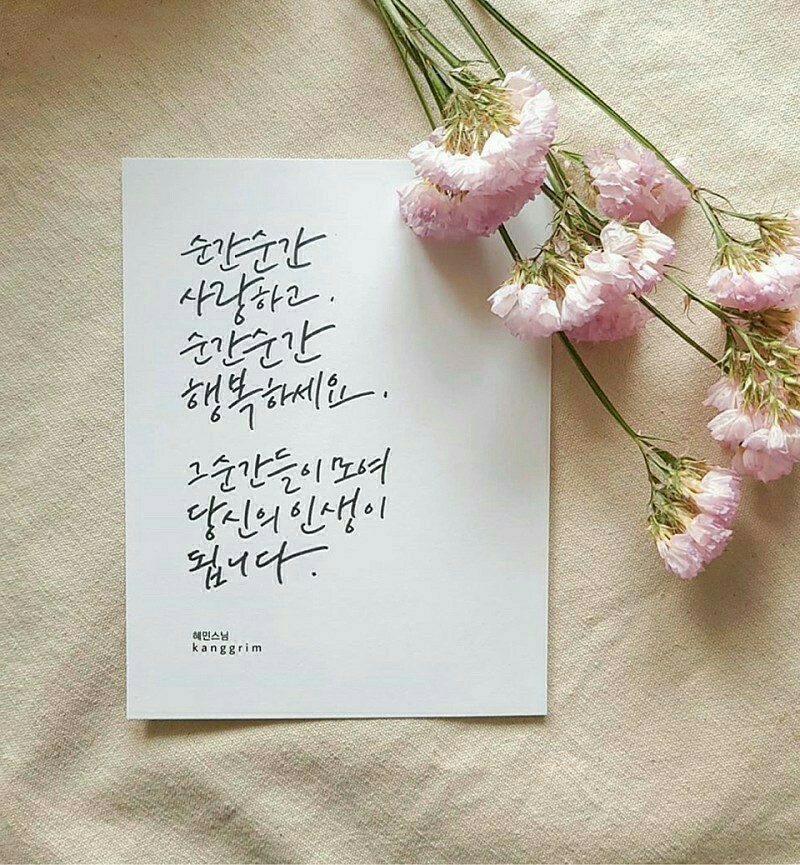 순간순간
사랑하고.
순간순간
행복하세요.
그 순간들이 모여
당신의 인생이
됩니다.
혜민스님
kanggrim